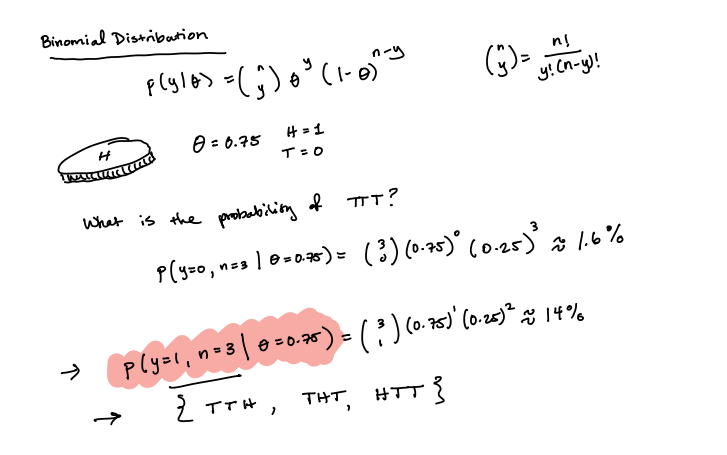 Binomial Distribution
p(y|θ) = (n y) θ^y (1-θ)^n-y
(n y) = n! / y!(n-y)!
H
θ = 0.75
H = 1
T = 0
What is the probability of TTT?
P(y=0, n=3 | θ=0.75) = (3 0) (0.75)^0 (0.25)^3 ≈ 1.6%
→ P(y=1, n=3 | θ=0.75) = (3 1) (0.75)^1 (0.25)^2 ≈ 14%
→ { TTH, THT, HTT }